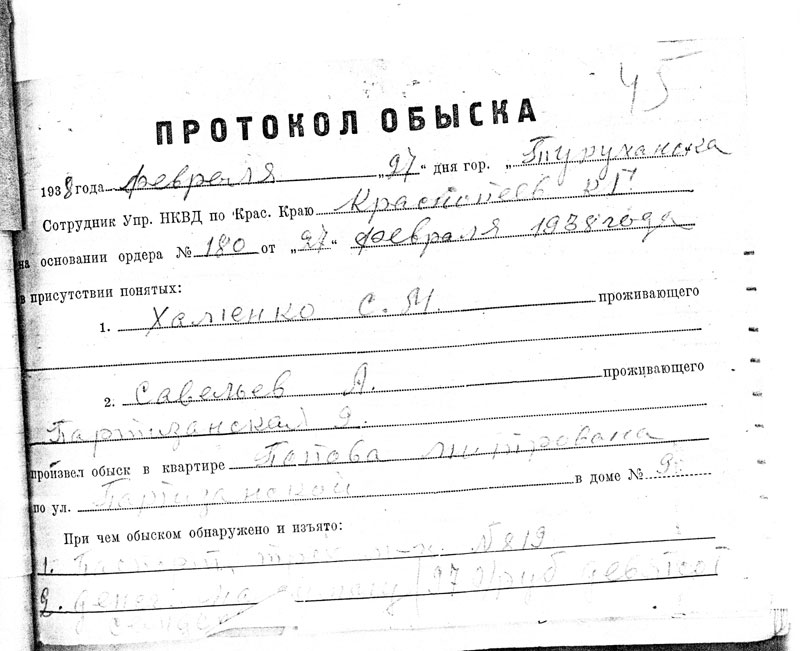 45
ПРОТОКОЛ ОБЫСКА
1938 года февраля „27“ дня гор. „Туруханска
Сотрудник Упр. НКВД по Крас. Краю
на основании ордера № 180 от „27“ февраля 1938 года
в присутствии понятых:
1. Халиенко С. М. проживающего
2. Савельев А. проживающего
Партизанская 9.
произвел обыск в квартире Попова
по ул. Партизанской в доме № 9
При чем обыском обнаружено и изъято:
1. Паспорт, №819
2. денег руб девятсот